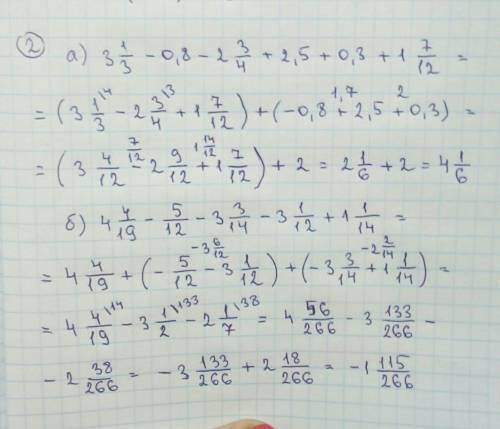 ② а) 3 1/3 − 0,8 − 2 3/4 + 2,5 + 0,3 + 1 7/12 =
= (3 1/3 \4 − 2 3/4 \3 + 1 7/12) + (−0,8 + 1,7 2,5 + 2 0,3) =
= (3 4/12 − 7/12 2 9/12 + 1 14/12 1 7/12) + 2 = 2 1/6 + 2 = 4 1/6
б) 4 4/19 − 5/12 − 3 3/14 − 3 1/12 + 1 1/14 =
= 4 4/19 + (− 5/12 − 3 6/12 − 3 1/12) + (−3 3/14 − 2 2/14 + 1 1/14) =
= 4 4/19 \14 − 3 1/2 \133 − 2 1/7 \38 = 4 56/266 − 3 133/266 −
− 2 38/266 = − 3 133/266 + 2 18/266 = −1 115/266